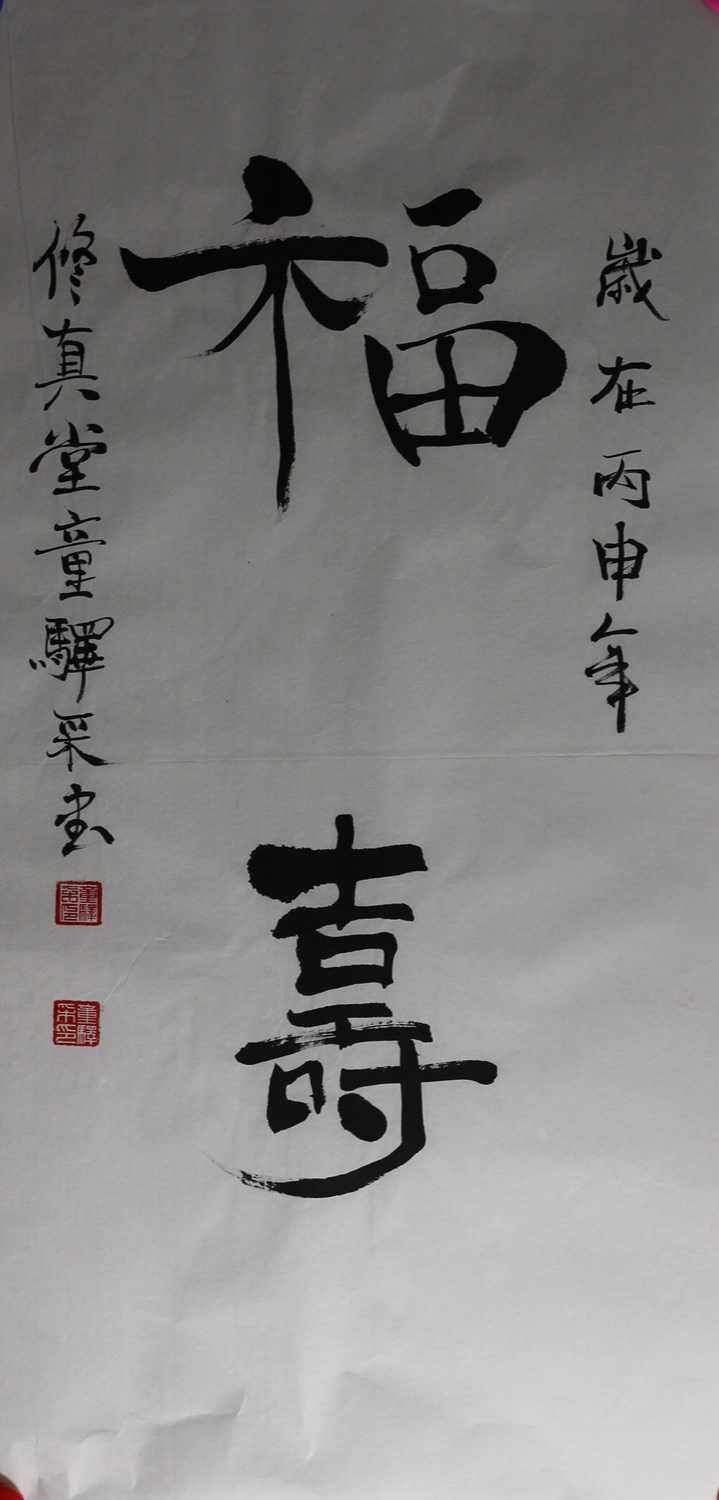 歲在丙申年
福壽
修真堂童驛采書